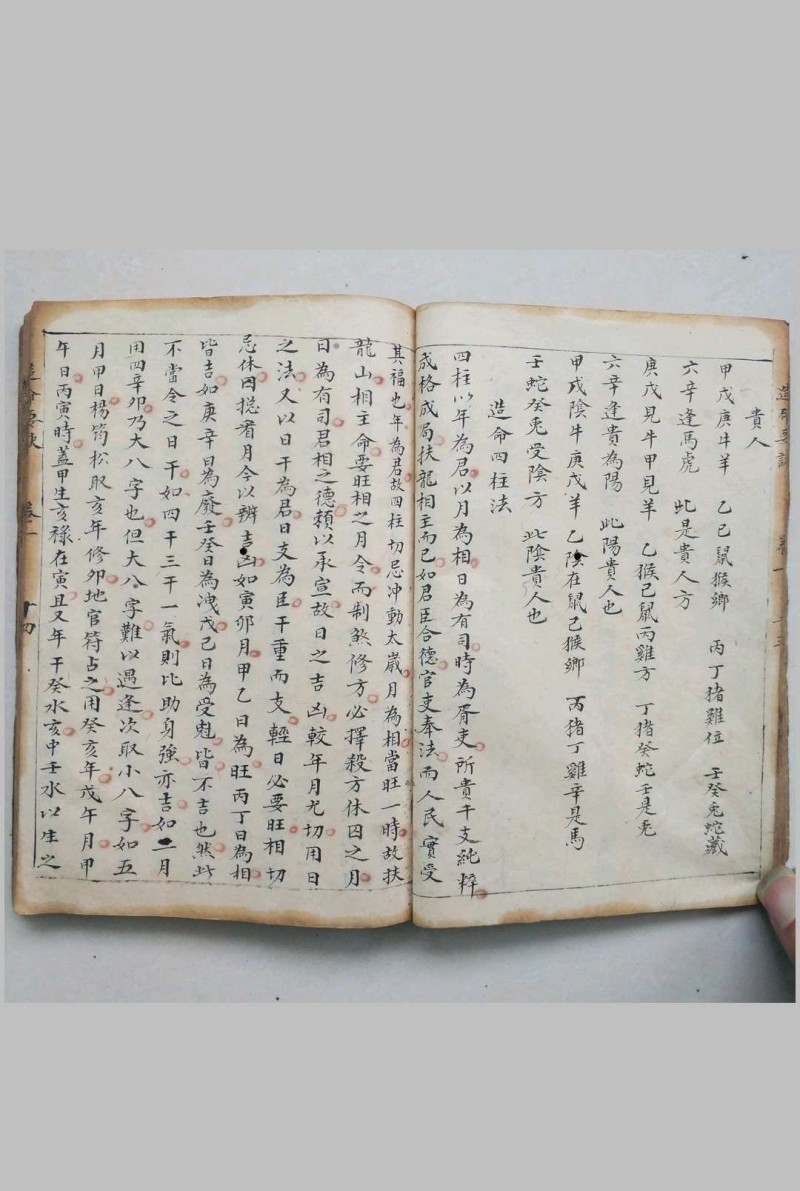 貴人
甲戊庚牛羊 乙己鼠猴鄉 丙丁猪雞位 壬癸兎蛇藏
六辛逢馬虎 此是貴人方
庚戊見牛甲見羊 乙猴己鼠丙雞方 丁猪癸蛇壬是兎
六辛逢貴為陽 此陽貴人也
甲戌陰牛庚戊羊 乙陰在鼠己猴鄉 丙猪丁雞辛是馬
壬蛇癸兎受陰方 此陰貴人也
造命四柱法
四柱以年為君以月為相日為有司時為胥吏所貴干支純粹
成格成局扶龍相主而已如君臣合德官吏奉法而人民實受
其福也年為君故四柱切忌冲動太歲月為相當旺一時故扶
龍山相主命要旺相之月令而制煞修方必擇殺方休囚之月
日為有司君相之德頼以承宣故日之吉凶較年月尤切用日
之法又以日干為君日支為臣干重而支輕日必要旺相切
忌休囚捴看月令以辨吉凶如寅卯月甲乙日為旺丙丁日為相
皆吉如庚辛日為廢壬癸日為洩戊己日為受尅皆不吉也然此
不當令之日干如四干三干一氣則比助身強亦吉如二月
用四辛卯乃大八字也但大八字難以遇逢次取小八字如五
月甲日楊筠松取亥年修卯地官符占之用癸亥年戊午月甲
午日丙寅時蓋甲生亥祿在寅且又年干癸水亥中壬水以生之
卷二 十四